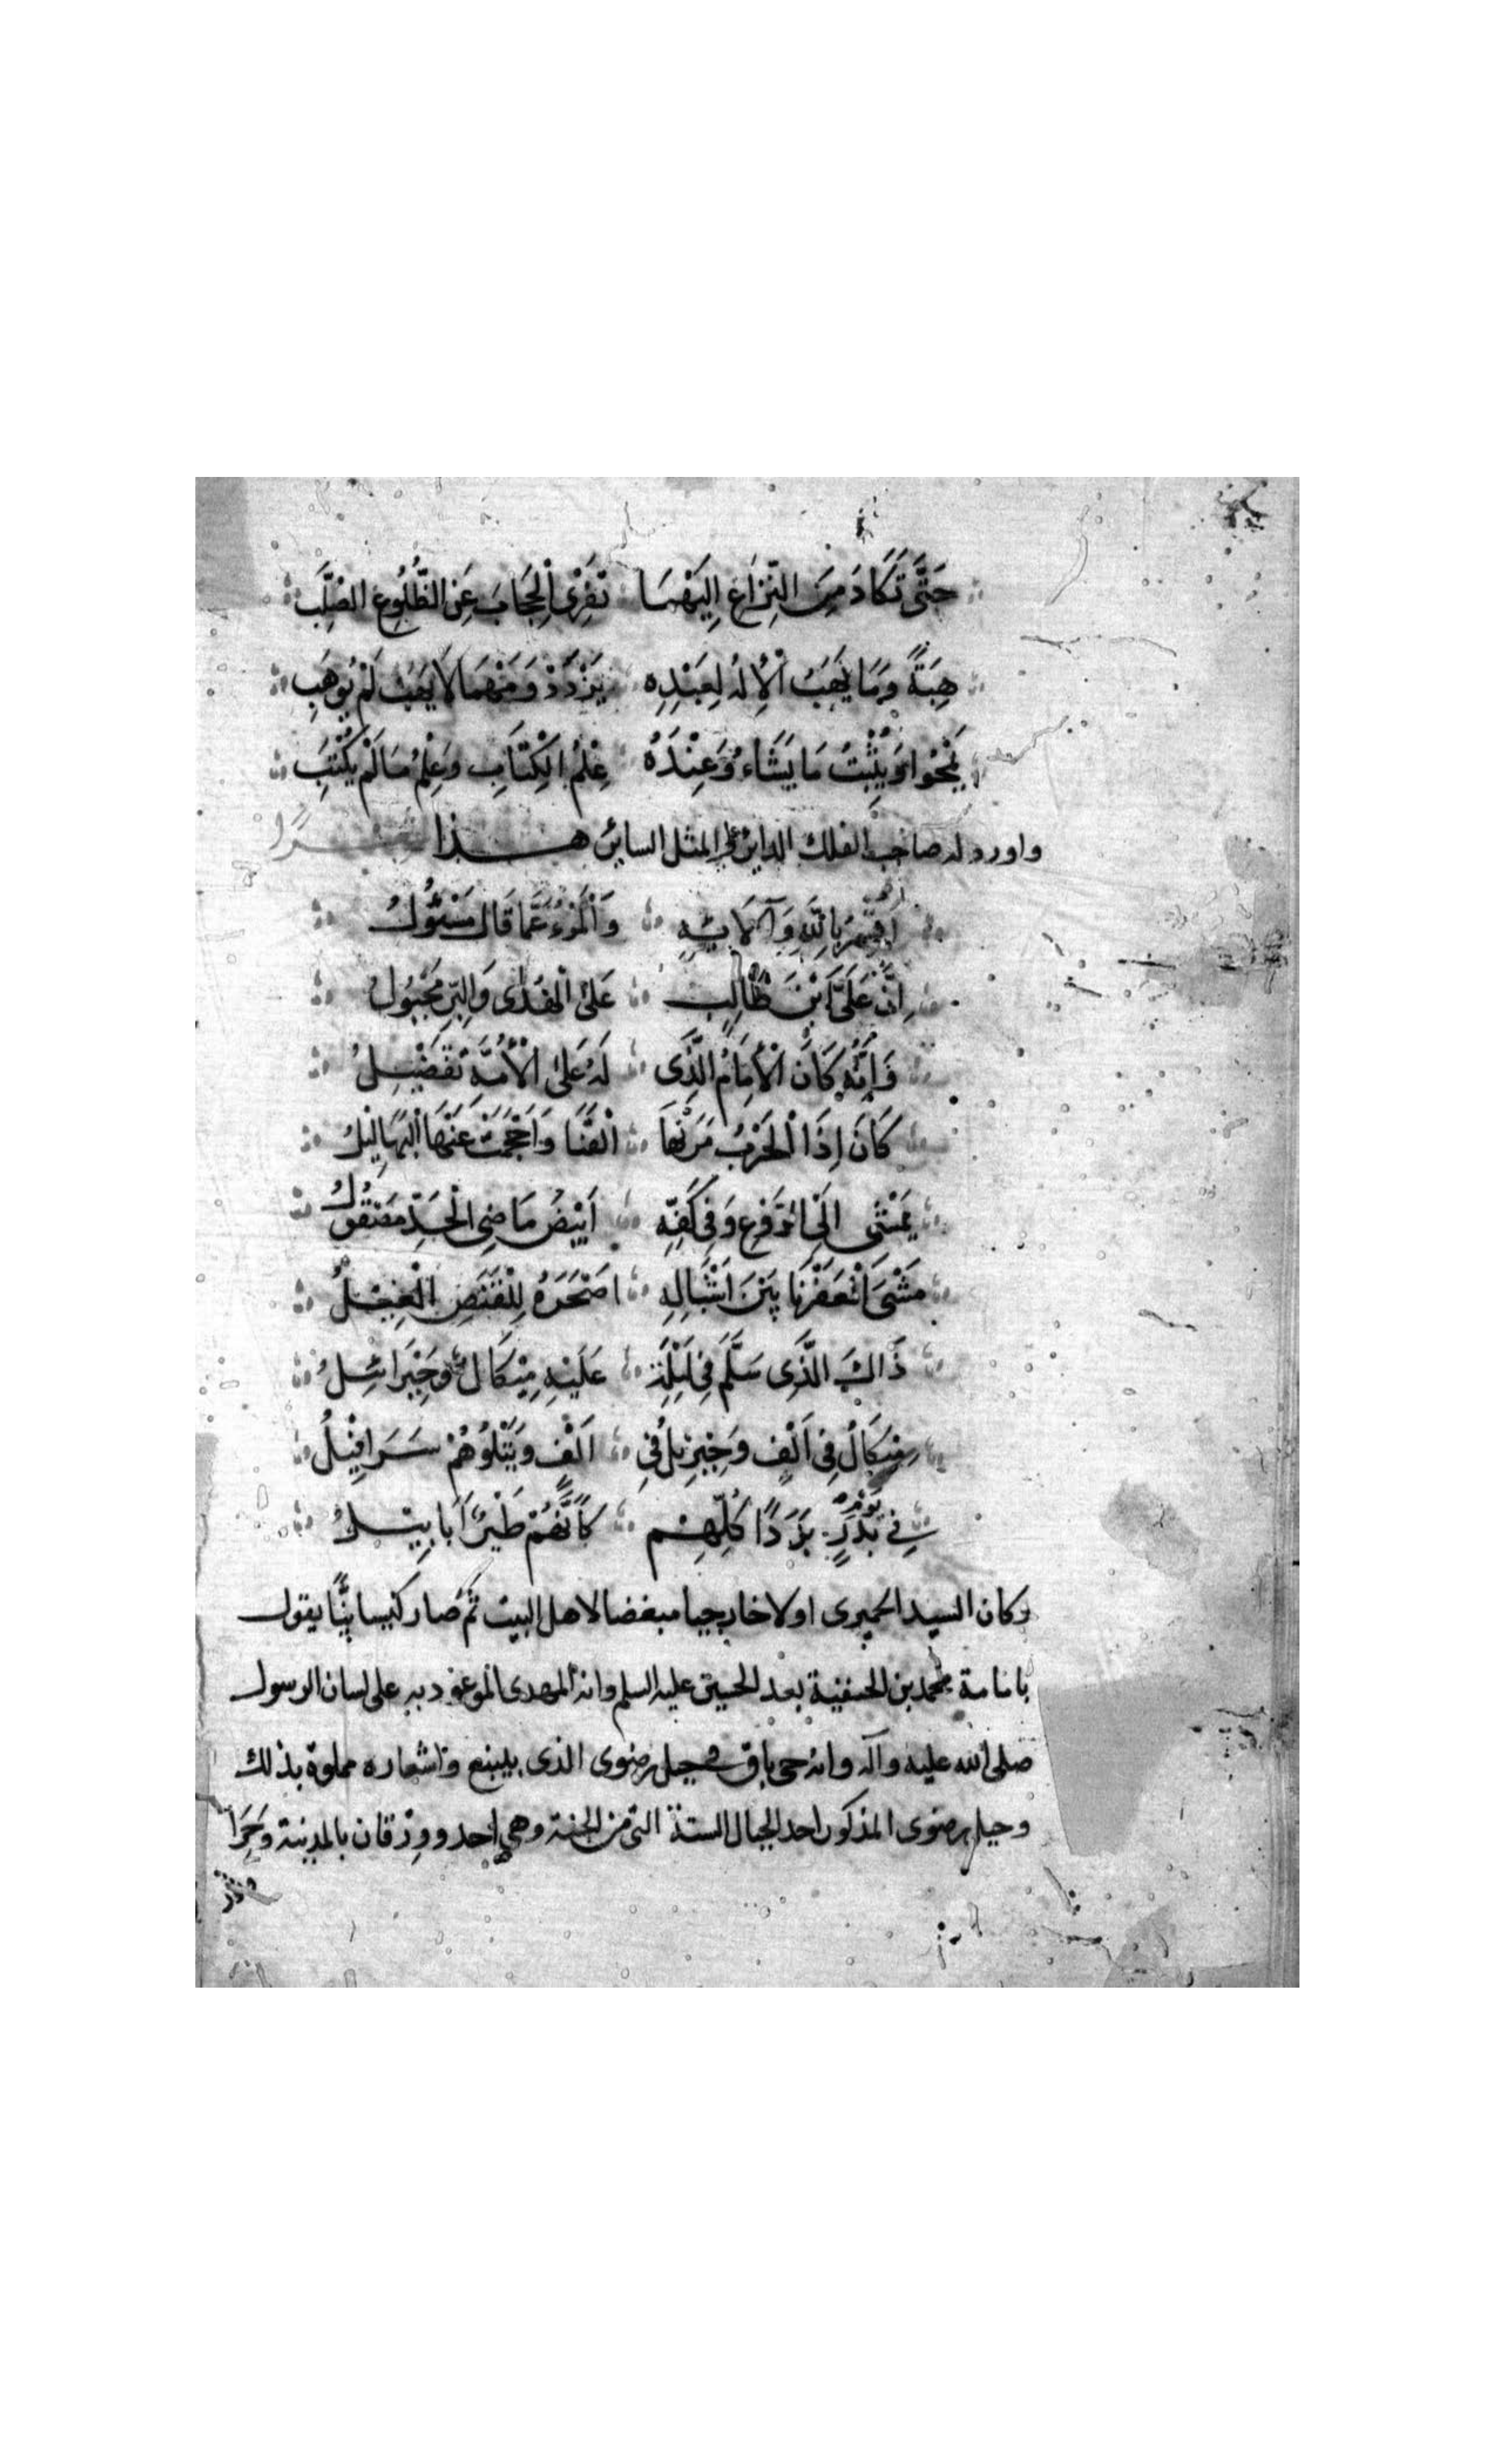 حَتَّى تَكَادَ مِنَ النِّزَاعِ اِلَيْهِمَا تَفْرِى الْحِجَابَ عَنِ الضُّلُوعِ الصُّلَّبِ
هِبَةً وَمَا يَهَبُ الْاِلهُ لِعَبْدِهِ يَزْدَدْ وَمَهْمَا لَا يَهَبْ لَمْ يُوهَبِ
يَمْحُوا وَيُثْبِتُ مَا يَشَاءُ وَعِنْدَهُ عِلْمُ الْكِتَابِ وَعِلْمُ مَا لَمْ يُكْتَبِ
واورد له صاحب الفلك الداير على المثل الساير هذا
اُقْسِمُ بِاللّهِ وَآلَائِهِ وَالْمَرْءُ عَمَّا قَالَ مَسْئُولُ
اِنَّ عَلِىَّ ابْنَ طَالِبٍ عَلَى الْهُدٰى وَالْبِرِّ مَجْبُولُ
وَاِنَّهُ كَانَ الْاِمَامُ الَّذِى لَهُ عَلَى الْاُمَّةِ تَفْضِيلُ
كَانَ اِذَا الْحَرْبُ مَرَتْهَا الْقَنَا وَاَحْجَمَتْ عَنْهَا الْبَهَالِيلُ
يَمْشِى اِلَى الرَّوْعِ وَفِى كَفِّهِ اَبْيَضُ مَاضِى الْحَدِّ مَصْقُولُ
مَشْىَ الْعَفَرْنَا بَيْنَ اَشْبَالِهِ اَصْحَرَهُ لِلْقَنَصِ الْغِيْلُ
ذَاكَ الَّذِى سَلَّمَ فِى لَيْلَةٍ عَلَيْهِ مِيْكَالُ وَجِبْرَائِيلُ
مِيكَالُ فِى اَلْفٍ وَجِبْرِيلُ فِى اَلْفٍ وَيَتْلُوهُمْ سَرَافِيْلُ
فِى يَوْمِ بَدْرٍ بَدَدًا كُلِّهِمْ كَأَنَّهُمْ طَيْرٌ اَبَابِيلُ
وكان السيد الحميرى اولا خارجيا مبغضا لاهل البيت ثم صار كيسانيًّا يقول
بامامة محمد بن الحنفية بعد الحسين عليه السلم وانه المهدى الموعود به على لسان الرسول
صلى الله عليه وآله وانه حى باق فى جبل رضوى الذى بينبع واشعاره مملوة بذلك
وجبل رضوى المذكور احد الجبال الستة التى من الجنة وهى احد وورقان بالمدينة وحرا